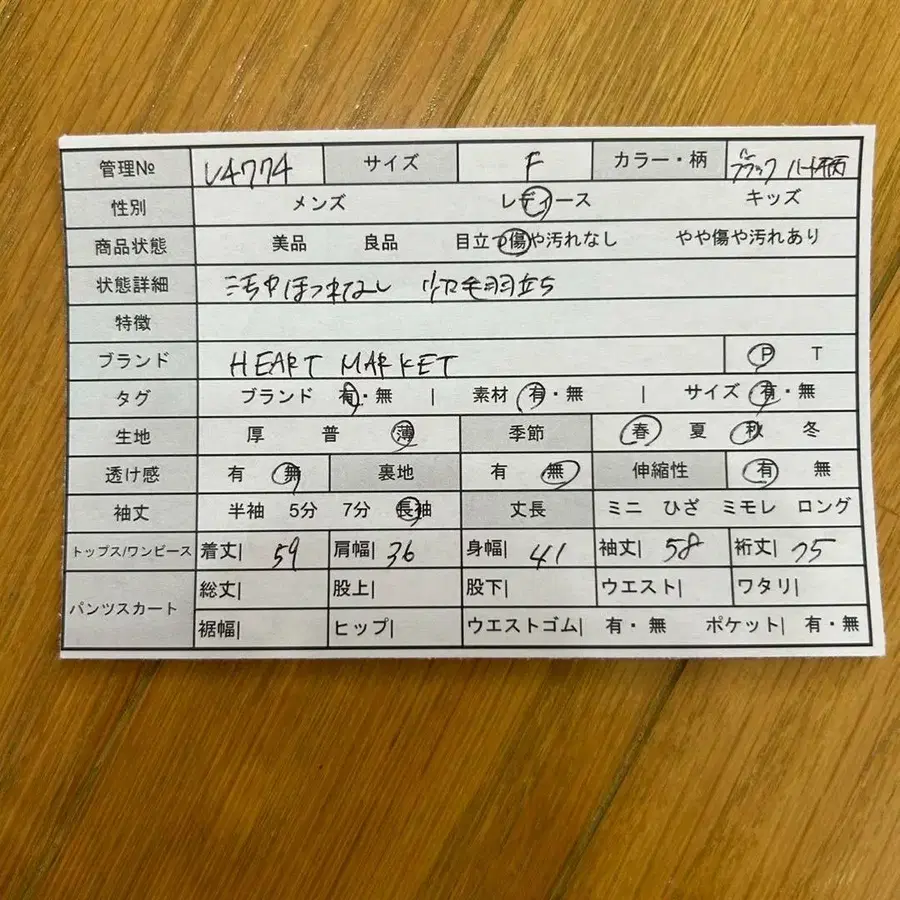 管理№ V4774 サイズ F カラー・柄 ブラック ハート柄
性別 メンズ レディース キッズ
商品状態 美品 良品 目立つ傷や汚れなし やや傷や汚れあり
状態詳細 汚れやほつれなし 少々毛羽立ち
特徴
ブランド HEART MARKET P T
タグ ブランド 有・無 | 素材 有・無 | サイズ 有・無
生地 厚 普 薄 季節 春 夏 秋 冬
透け感 有 無 裏地 有 無 伸縮性 有 無
袖丈 半袖 5分 7分 長袖 丈長 ミニ ひざ ミモレ ロング
トップス/ワンピース 着丈| 59 肩幅| 36 身幅| 41 袖丈| 58 裄丈| 75
パンツスカート 総丈| 股上| 股下| ウエスト| ワタリ|
裾幅| ヒップ| ウエストゴム| 有・無 ポケット| 有・無